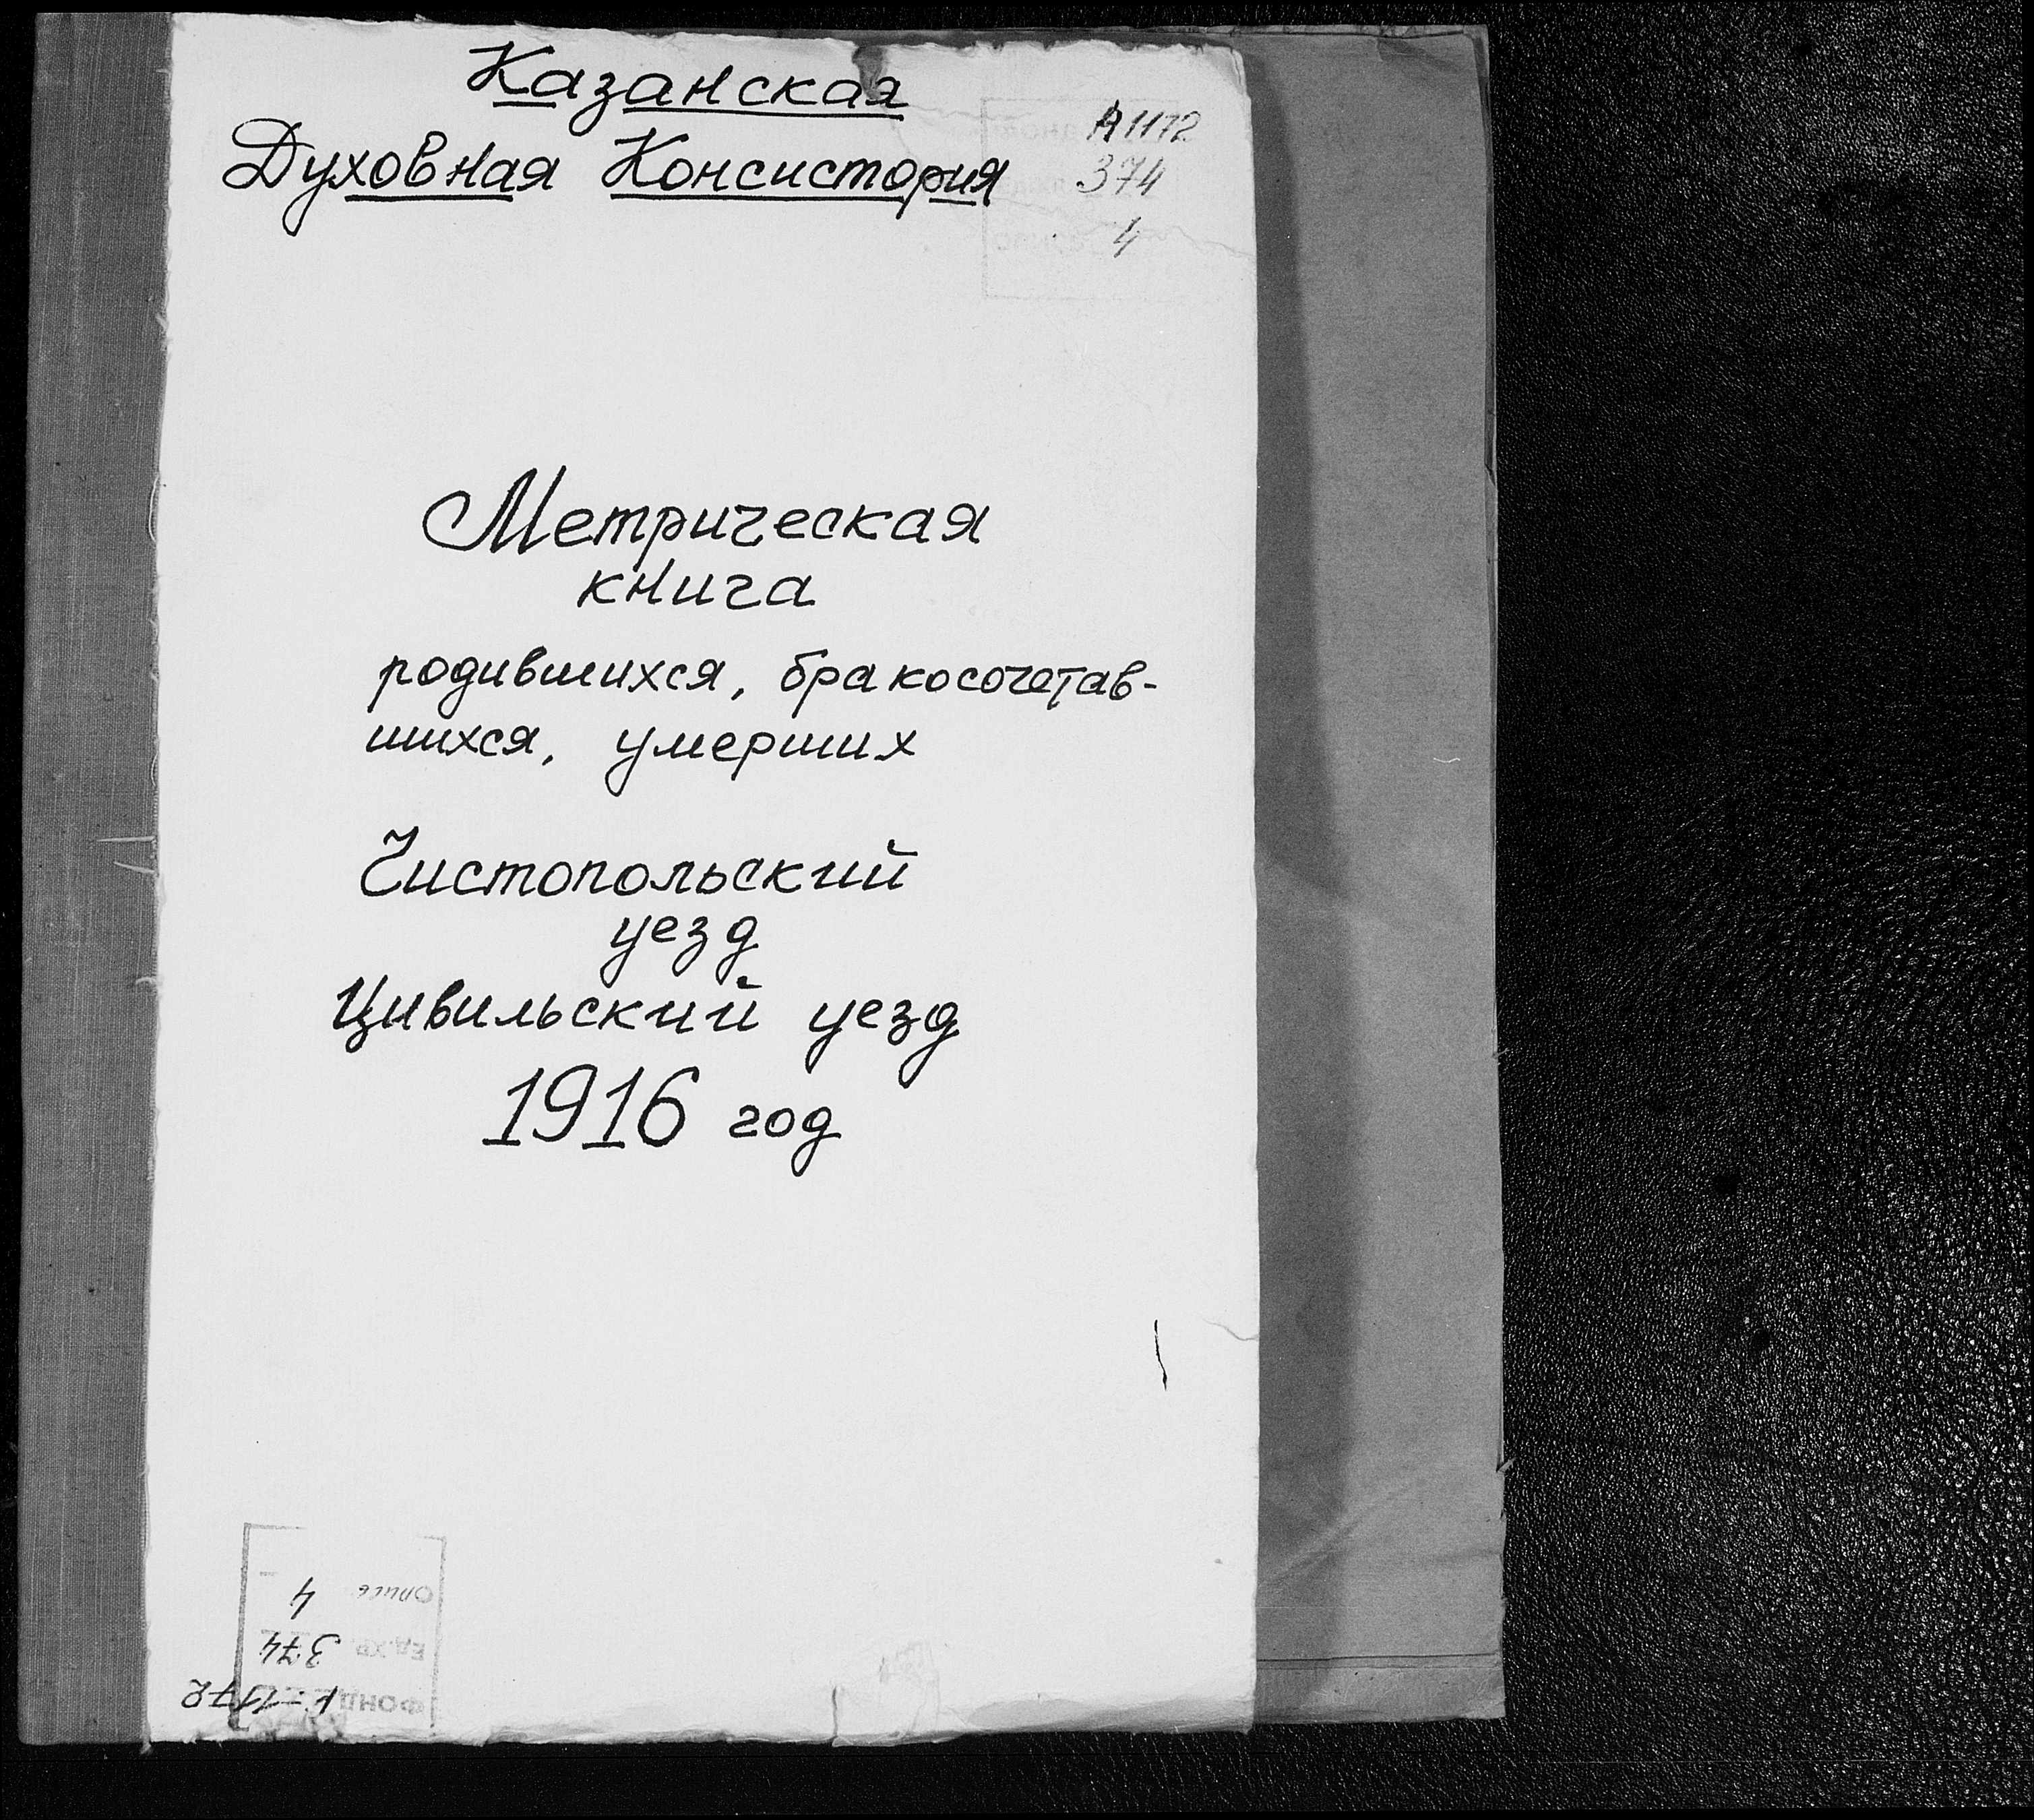 Казанская
Духовная Консистория
А 1172
374
4
Метрическая
книга
родившихся, бракосочетав-
шихся, умерших
Чистопольский
уезд
Цивильский уезд
1916 год
ФОНД 1172
Ед.хр. 374
Опись 4